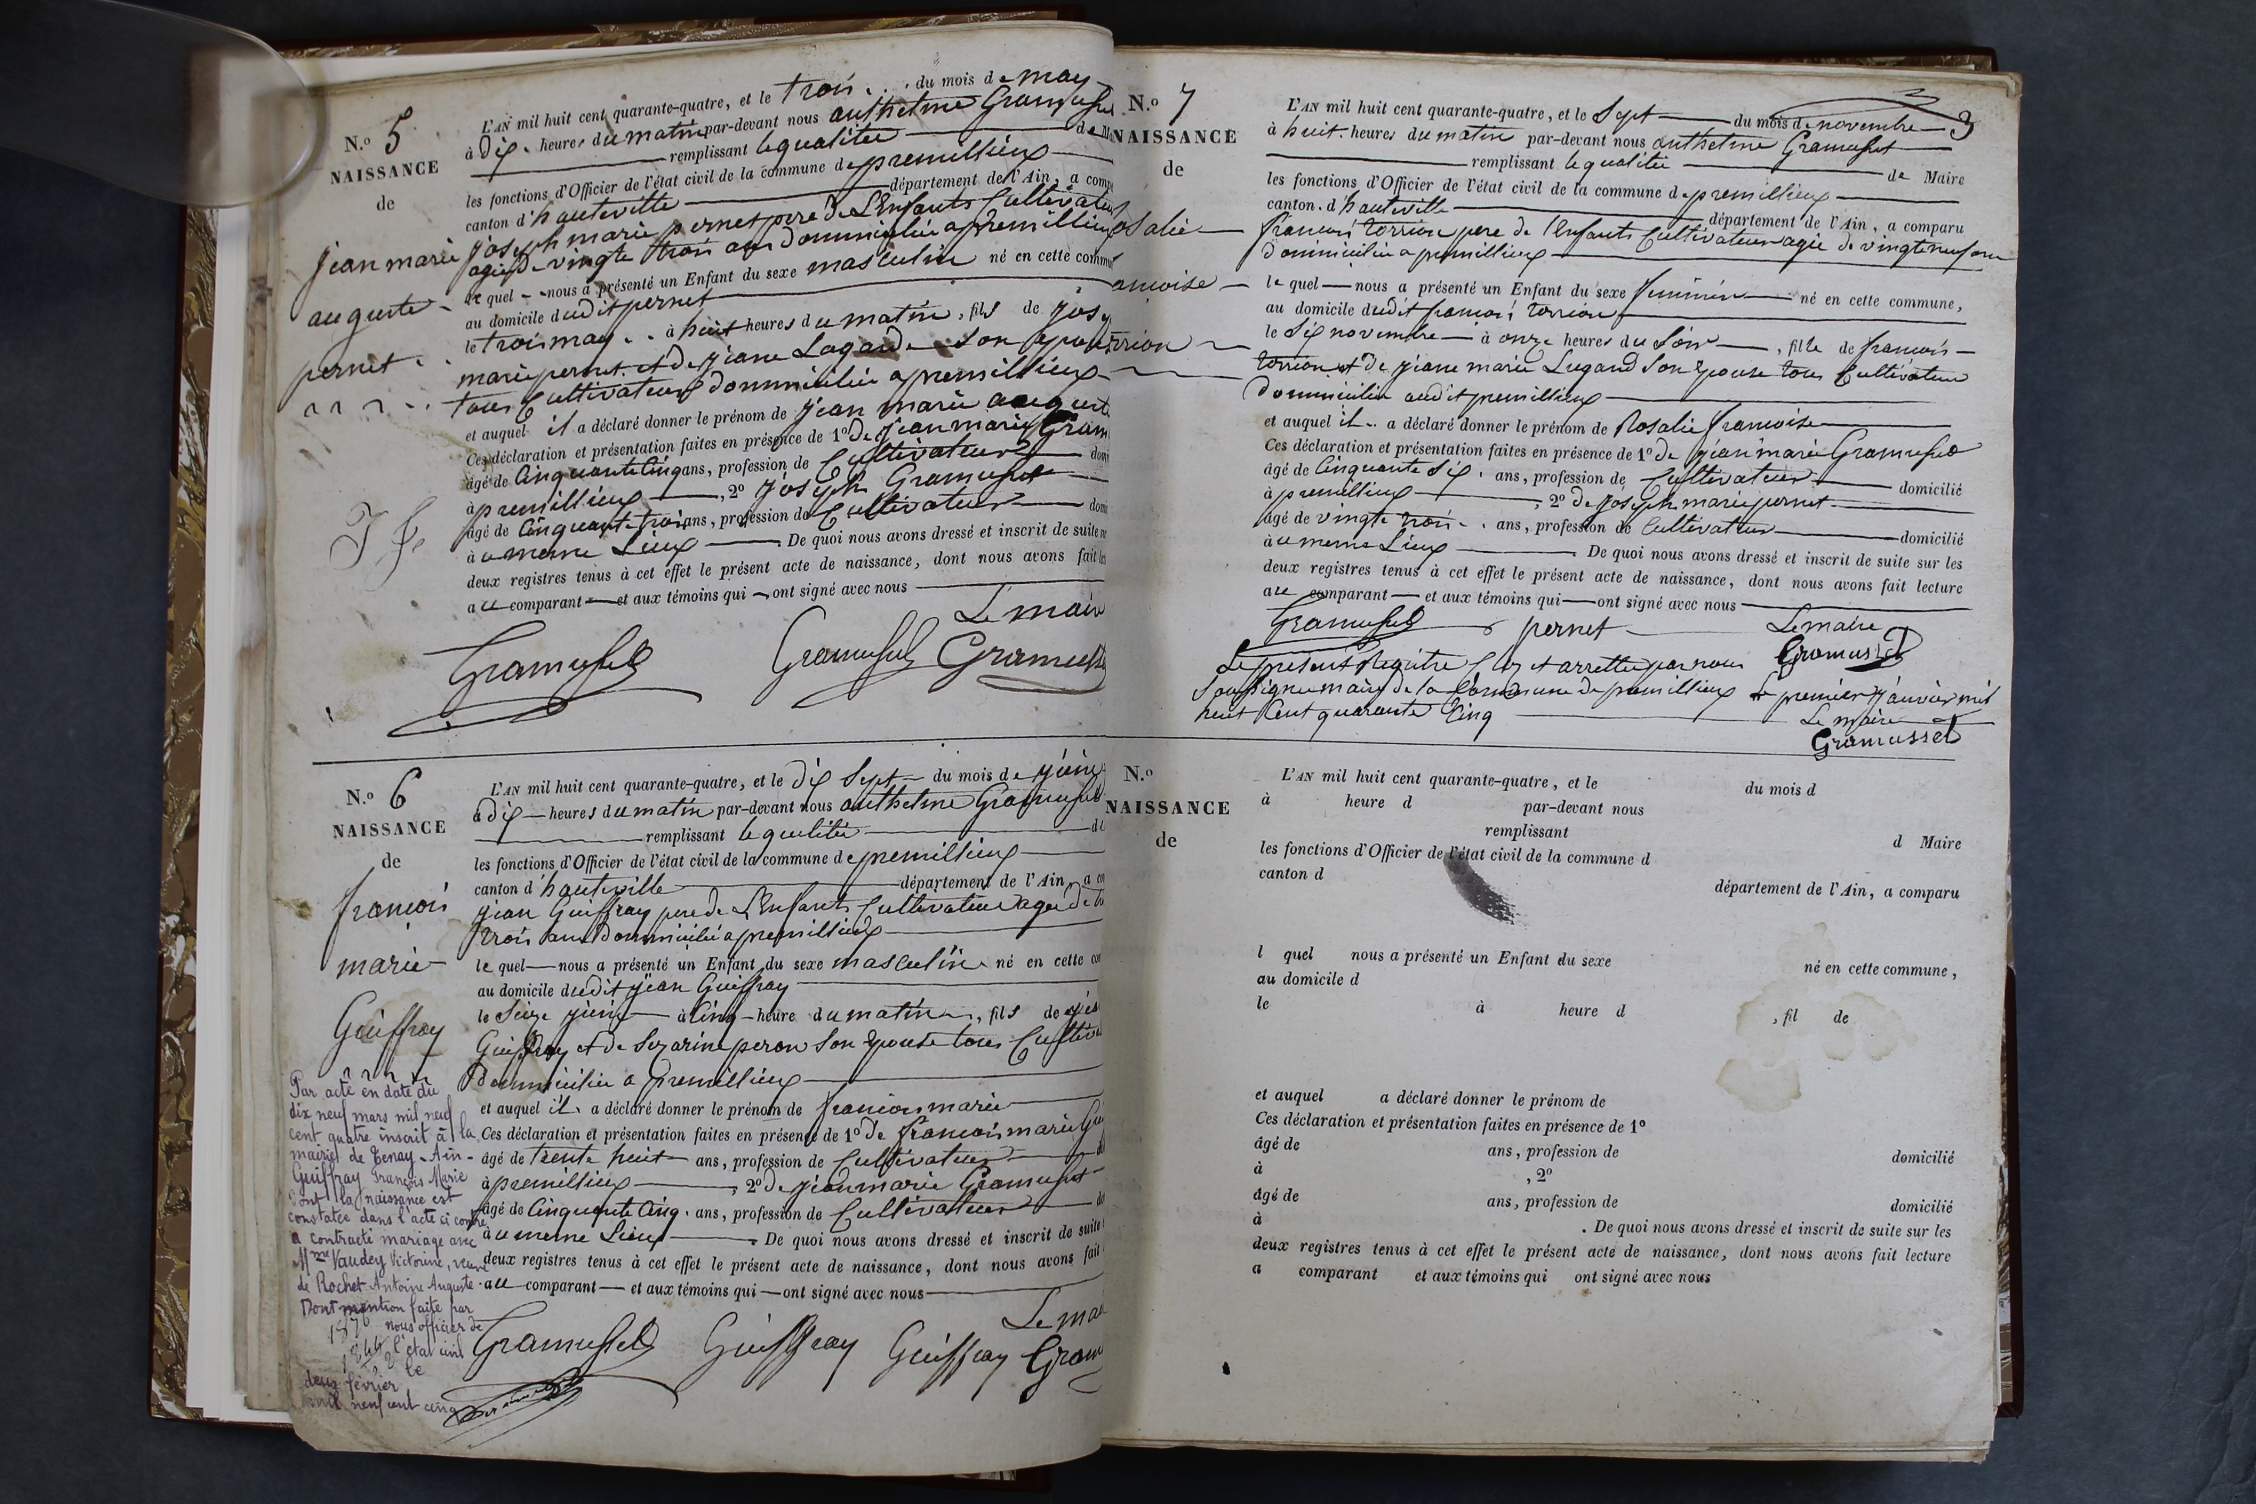 N.º 5
NAISSANCE
de
jean marie
auguste
pernet
L'AN mil huit cent quarante-quatre, et le trois du mois de may
à dix heures du matin par-devant nous anthelme Gramusset
remplissant le qualitée
les fonctions d'Officier de l'état civil de la commune de premillieux
canton d'hauteville département de l'Ain, a comp
joseph marie pernet pere de L'Enfants Cultivateur
agée de vingte trois ans domiciliée a premillieux
le quel nous a présenté un Enfant du sexe masculin né en cette commu
au domicile dudit pernet
le trois may à huit heures du matin, fils de jos
marie pernet et de jeane Lagarde son epouse
tous Cultivateur domiciliée a premillieux
et auquel il a déclaré donner le prénom de jean marie auguste
Ces déclaration et présentation faites en présence de 1º de jean marie Gram
âgé de Cinquante Cinq ans, profession de Cultivateur domi
à premillieux, 2º joseph Gramusset
âgé de Cinquante trois ans, profession de Cultivateur domi
à u meme Lieux. De quoi nous avons dressé et inscrit de suite
deux registres tenus à cet effet le présent acte de naissance, dont nous avons fait
au comparant et aux témoins qui ont signé avec nous
Le maire
Gramusset Gramusset Gramusse
N.º 6
NAISSANCE
de
francois
marie
Guiffray
L'AN mil huit cent quarante-quatre, et le dix Sept du mois de juin
à dix heures du matin par-devant nous anthelme Gramusset
remplissant le qualitée
les fonctions d'Officier de l'état civil de la commune de premillieux
canton d'hauteville département de l'Ain, a co
jean Guiffray pere de L'Enfants Cultivateur agée de
trois ans domiciliée a premillieux
le quel nous a présenté un Enfant du sexe masculin né en cette co
au domicile dudit jean Guiffray
le Seize juin à Cinq heure du matin, fils de
Guiffray et de Sezarine peron Son epouse tous Cultiva
domiciliée a premillieux
et auquel il a déclaré donner le prénom de francois marie
Ces déclaration et présentation faites en présence de 1º de francois marie Gui
âgé de trente huit ans, profession de Cultivateur
à premillieux, 2º de jean marie Gramusset
âgé de Cinquente Cinq ans, profession de Cultivateur
à u meme Lieux. De quoi nous avons dressé et inscrit de suite
deux registres tenus à cet effet le présent acte de naissance, dont nous avons fait
au comparant et aux témoins qui ont signé avec nous
Le mai
Gramusset Guiffray Guiffray Gram
Par acte en date du
dix neuf mars mil neuf
cent quatre inscrit à la
mairie de Tenay - Ain -
Guiffray François Marie
dont la naissance est
constatée dans l'acte ci contre
a contracté mariage avec
Mme Vaudey Victorine, veuve
de Rochet Antoine Auguste
Dont mention faite par
nous officier de
l'état civil
le
deux février
mil neuf cent cinq
N.º 7
NAISSANCE
de
osalie
ancoise
orrion
3
L'AN mil huit cent quarante-quatre, et le Sept du mois de novembre
à huit heures du matin par-devant nous anthelme Gramusset
remplissant le qualitée de Maire
les fonctions d'Officier de l'état civil de la commune de premillieux
canton d'hauteville département de l'Ain, a comparu
francois torrion pere de l'Enfants Cultivateur agée de vingte neuf ans
domiciliée a premillieux
le quel nous a présenté un Enfant du sexe feminin né en cette commune,
au domicile dudit francois torrion
le Six novembre à onze heures du Soir, fille de francois
torrion et de jeane marie Lugand Son epouse tous Cultivateur
domiciliée audit premillieux
et auquel il a déclaré donner le prénom de Rosalie francoise
Ces déclaration et présentation faites en présence de 1º de jean marie Gramusset
âgé de Cinquante Six ans, profession de Cultivateur domicilié
à premillieux, 2º de joseph marie pernet
âgé de vingte trois ans, profession de Cultivateur domicilié
à u meme Lieux. De quoi nous avons dressé et inscrit de suite sur les
deux registres tenus à cet effet le présent acte de naissance, dont nous avons fait lecture
au comparant et aux témoins qui ont signé avec nous
Gramusset pernet Le maire
Gramusset
Le présent Registre Clos et arretté par nous
Soussigné maire de la Commune de premillieux Le premier janvier mil
huit Cent quarante Cinq
Le maire
Gramusset
N.º
NAISSANCE
de
L'AN mil huit cent quarante-quatre, et le du mois d
à heure d par-devant nous
remplissant d Maire
les fonctions d'Officier de l'état civil de la commune d
canton d département de l'Ain, a comparu
l quel nous a présenté un Enfant du sexe né en cette commune,
au domicile d
le à heure d , fil de
et auquel a déclaré donner le prénom de
Ces déclaration et présentation faites en présence de 1º
âgé de ans, profession de domicilié
à , 2º
âgé de ans, profession de domicilié
à . De quoi nous avons dressé et inscrit de suite sur les
deux registres tenus à cet effet le présent acte de naissance, dont nous avons fait lecture
a comparant et aux témoins qui ont signé avec nous